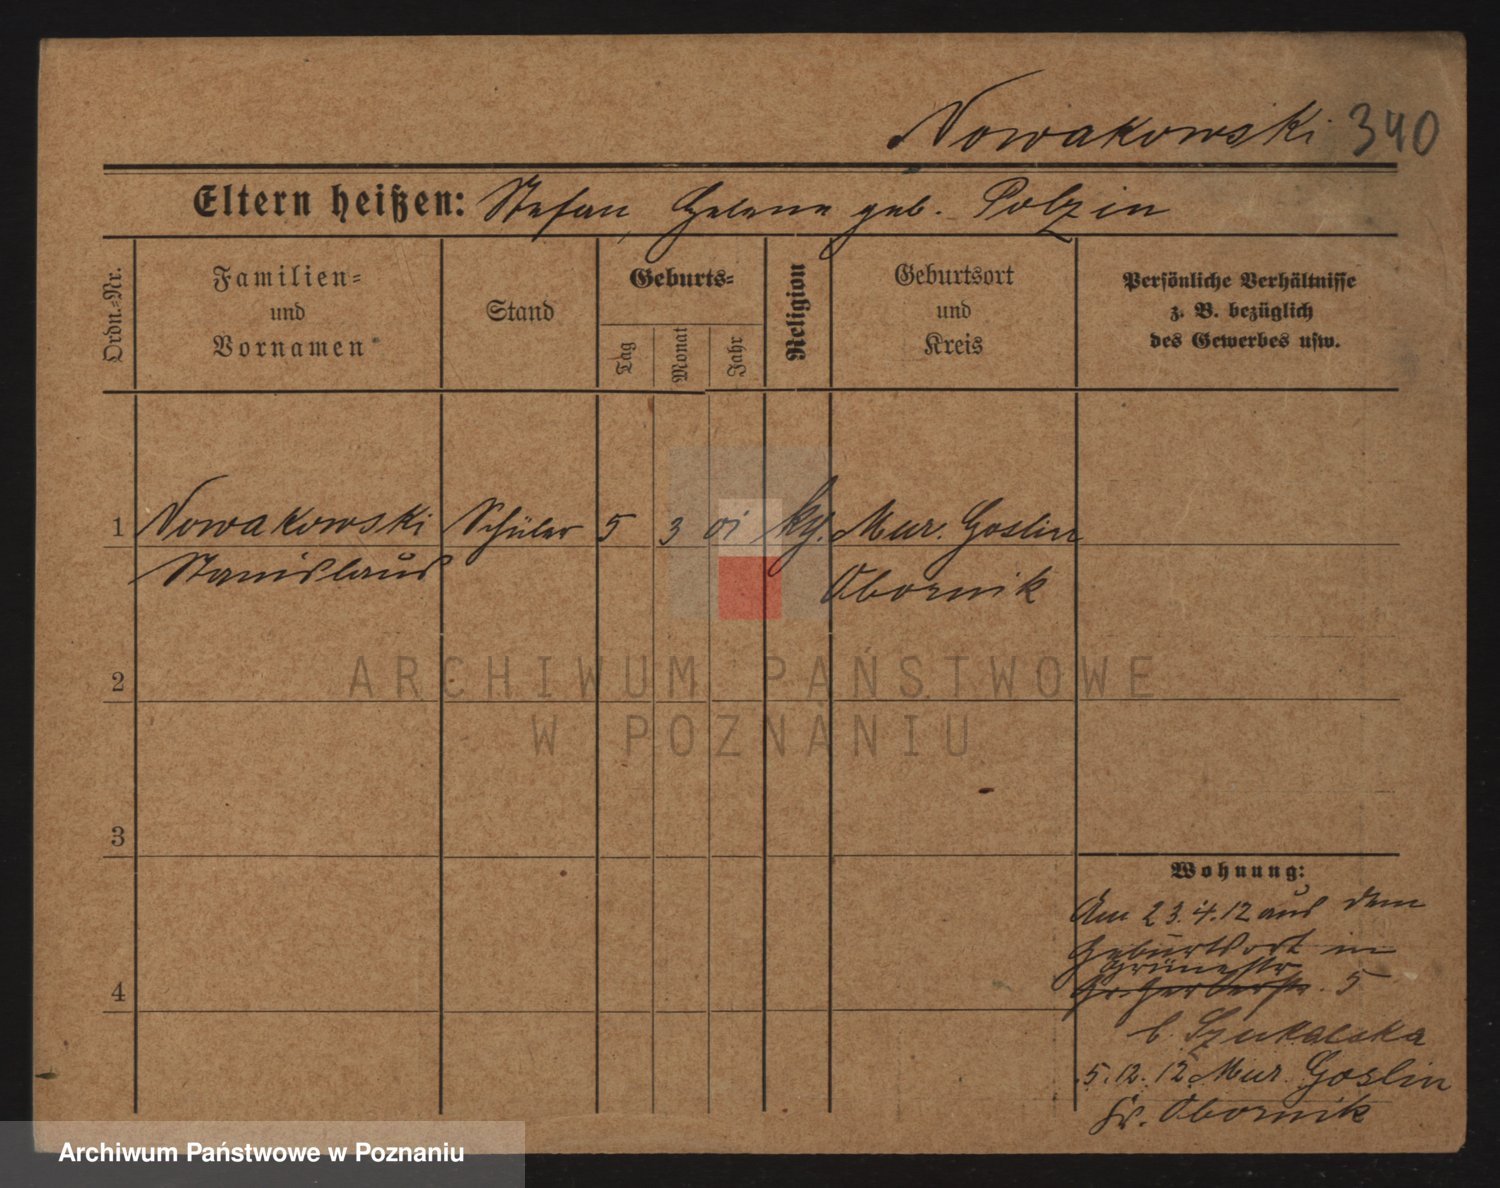 Nowakowski 340
Eltern heißen: Stefan, Helene geb. Polzin
Ordn.-Nr.
Familien-
und
Vornamen
Stand
Geburts-
Tag
Monat
Jahr
Religion
Geburtsort
und
Kreis
Persönliche Verhältnisse
z. B. bezüglich
des Gewerbes usw.
1 Nowakowski Schüler 5 3 01 kg. Mur. Goslin
Stanislaus Obornik
2
3
4
ARCHIWUM PAŃSTWOWE
W POZNANIU
Wohnung:
Am 23.4.12 aus dem
Geburtsort in
Grünestr
Gr. Gerberstr. 5
b. Szukalska
5.12.12 Mur. Goslin
Kr. Obornik
Archiwum Państwowe w Poznaniu